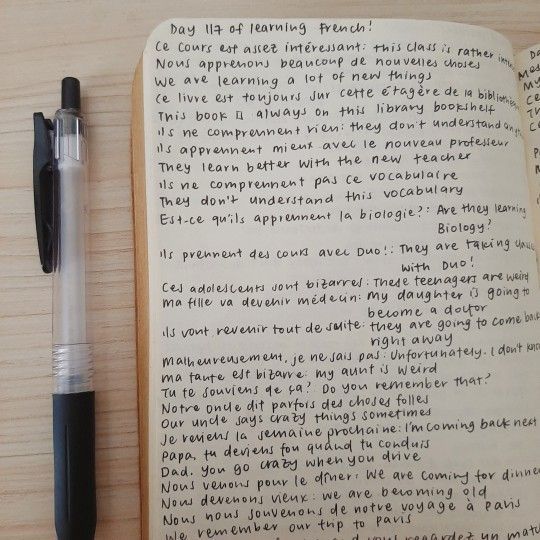 Day 117 of learning French!
Ce cours est assez intéressant: this class is rather
Nous apprenons beaucoup de nouvelles choses
We are learning a lot of new things
Ce livre est toujours sur cette étagère de la
This book always on this library bookshelf
Ils ne comprennent rien: they don't understand
Ils apprennent mieux avec le nouveau professeur
They learn better with the new teacher
Ils ne comprennent pas ce vocabulaire
They don't understand this vocabulary
Est-ce qu'ils apprennent la biologie?: Are they learning
Biology?
Ils prennent des cours avec Duo!: They are taking
with Duo!
Ces adolescents sont bizarres: These teenagers are weird
ma fille va devenir médecin: my daughter is going to
become a doctor
ils vont revenir tout de suite: they are going to come back
right away
malheureusement, je ne sais pas: Unfortunately. I don't
ma tante est bizarre: my aunt is weird
Tu te souviens de ça?: Do you remember that?
Notre oncle dit parfois des choses folles
Our uncle says crazy things sometimes
Je reviens la semaine prochaine: I'm coming back next
Papa, tu deviens fou quand tu conduis
Dad. you go crazy when you drive
Nous venons pour le dîner: We are coming for dinner
Nous devenons vieux: we are becoming old
Nous nous souvenons de notre voyage à Paris
We remember our trip to Paris
vous regardez un